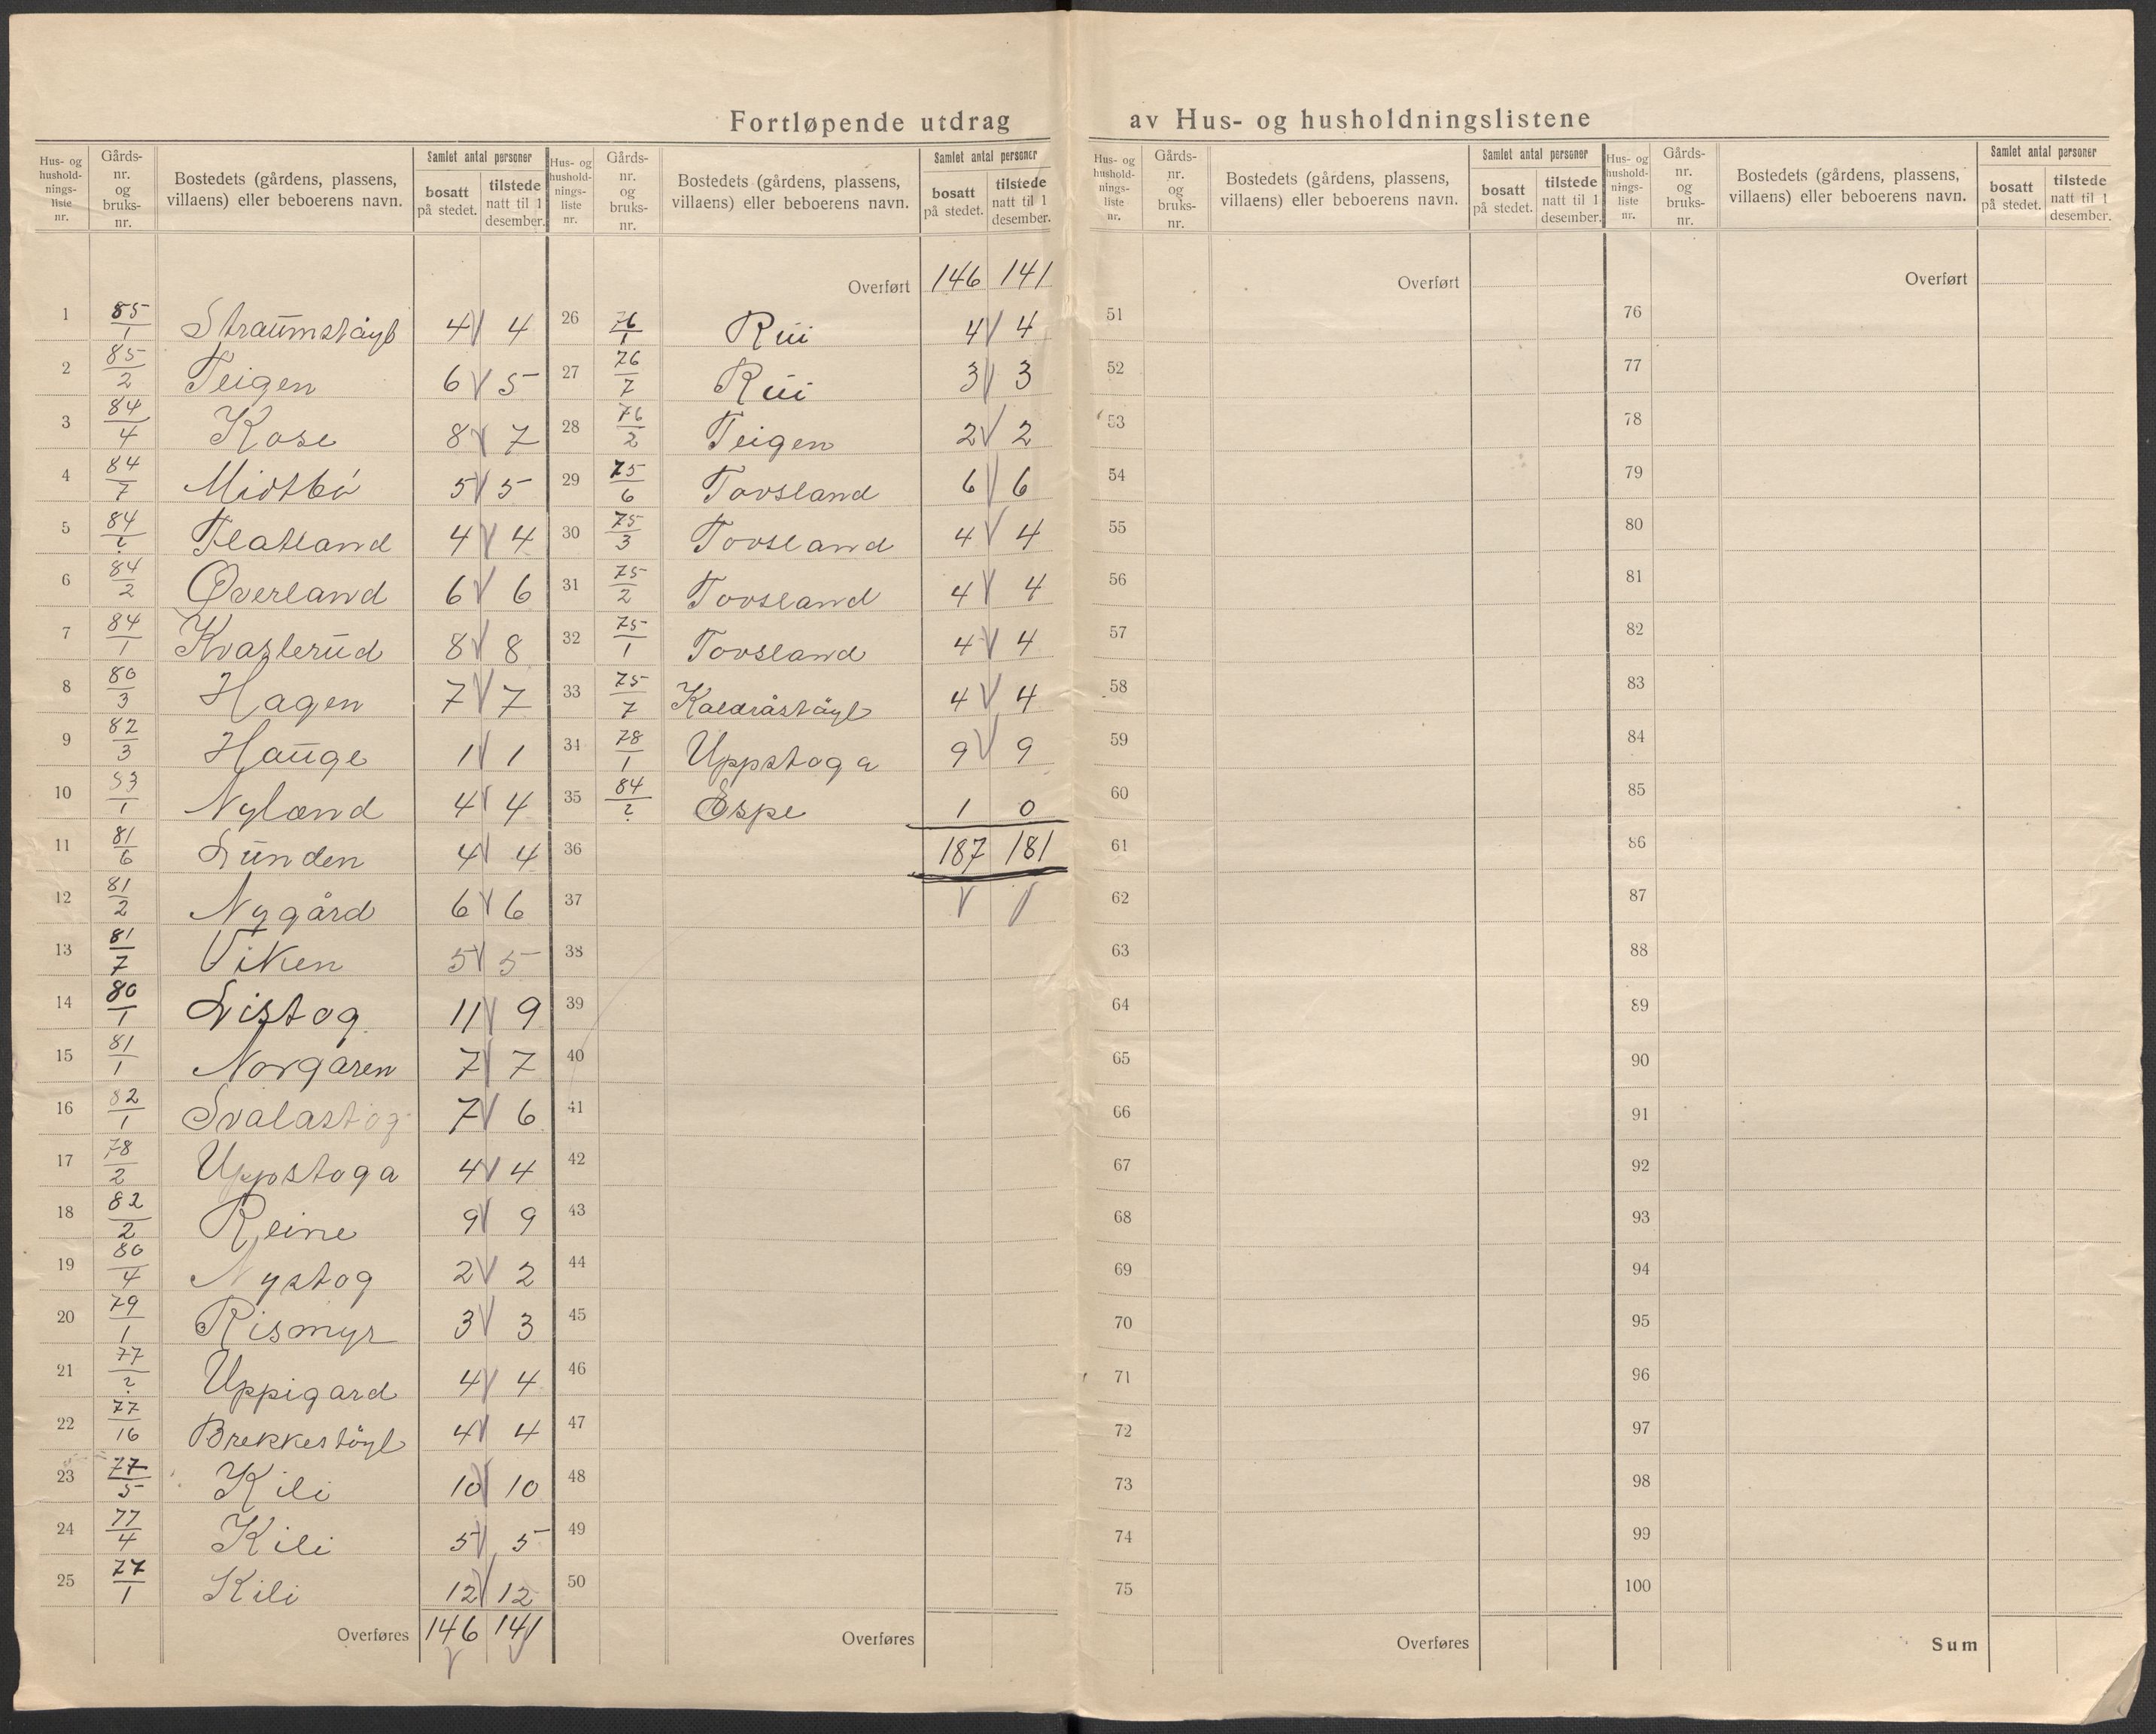 Fortløpende utdrag av Hus- og husholdningslistene
Hus- og husholdnings-liste nr. | Gårds-nr. og bruks-nr. | Bostedets (gårdens, plassens, villaens) eller beboerens navn. | Samlet antal personer | bosatt på stedet. | tilstede natt til 1 desember.
1 85/1 Straumstøyl 4 4
2 85/2 Teigen 6 5
3 84/4 Kose 8 7
4 84/7 Midtbö 5 5
5 84/? Flatland 4 4
6 84/2 Øverland 6 6
7 84/1 Kvasterud 8 8
8 80/3 Hagen 7 7
9 82/3 Hauge 1 1
10 83/1 Nyland 4 4
11 81/6 Lunden 4 4
12 81/2 Nygård 6 6
13 81/7 Viken 5 5
14 80/1 Listog 11 9
15 81/1 Norgaren 7 7
16 82/1 Svalastog 7 6
17 78/2 Uppstoga 4 4
18 82/2 Reine 9 9
19 80/4 Nystog 2 2
20 79/1 Rismyr 3 3
21 77/? Uppigard 4 4
22 77/16 Brekkestöyl 4 4
23 77/5 Kili 10 10
24 77/4 Kili 5 5
25 77/1 Kili 12 12
Overføres 146 141
Hus- og husholdnings-liste nr. | Gårds-nr. og bruks-nr. | Bostedets (gårdens, plassens, villaens) eller beboerens navn. | Samlet antal personer | bosatt på stedet. | tilstede natt til 1 desember.
Overført 146 141
26 76/1 Rui 4 4
27 76/7 Rui 3 3
28 76/2 Teigen 2 2
29 75/6 Tovsland 6 6
30 75/3 Tovsland 4 4
31 75/2 Tovsland 4 4
32 75/1 Tovsland 4 4
33 75/7 Kaldråstäyl 4 4
34 78/1 Uppstoga 9 9
35 84/? Espe 1 0
36 187 181
37
38
39
40
41
42
43
44
45
46
47
48
49
50
Overføres
Hus- og husholdnings-liste nr. | Gårds-nr. og bruks-nr. | Bostedets (gårdens, plassens, villaens) eller beboerens navn. | Samlet antal personer | bosatt på stedet. | tilstede natt til 1 desember.
Overført
51
52
53
54
55
56
57
58
59
60
61
62
63
64
65
66
67
68
69
70
71
72
73
74
75
Overføres
Hus- og husholdnings-liste nr. | Gårds-nr. og bruks-nr. | Bostedets (gårdens, plassens, villaens) eller beboerens navn. | Samlet antal personer | bosatt på stedet. | tilstede natt til 1 desember.
Overført
76
77
78
79
80
81
82
83
84
85
86
87
88
89
90
91
92
93
94
95
96
97
98
99
100
Sum